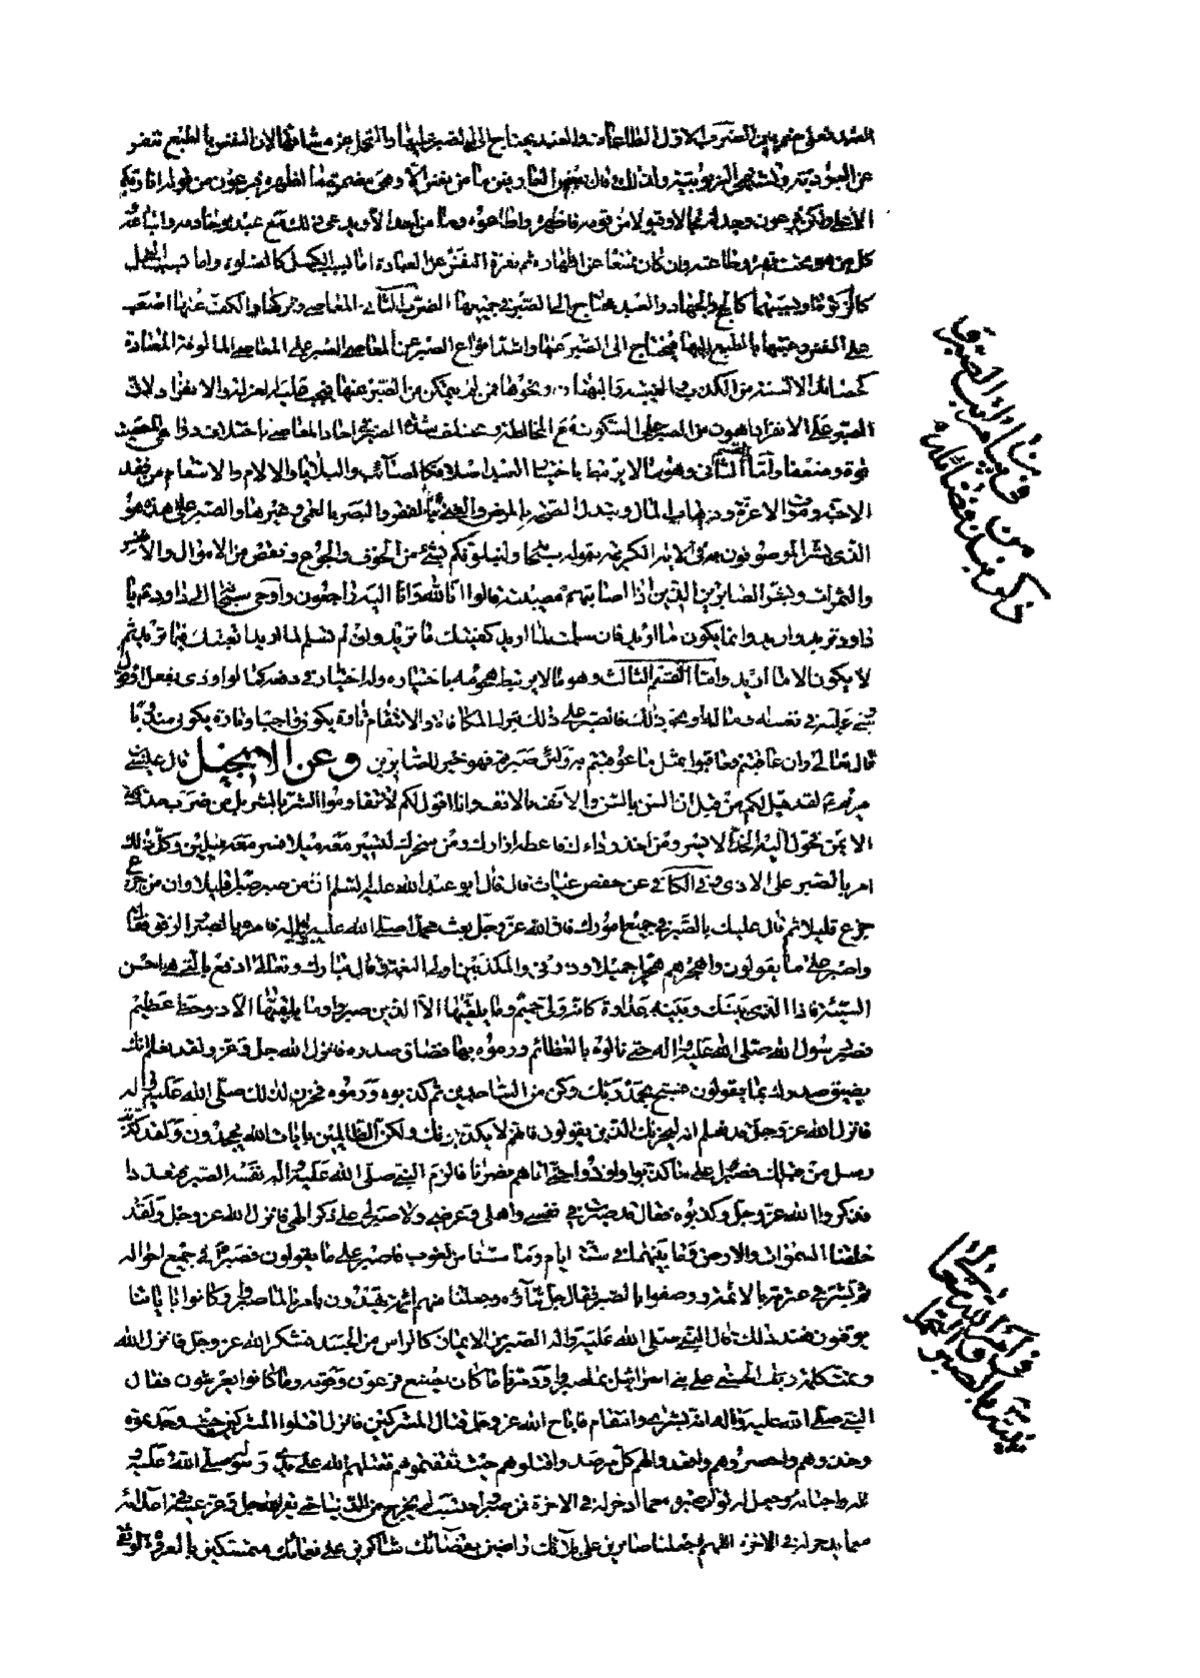 العبد تعلق ضربين الضرب الاول الطاعات والعبد يحتاج الى الصبر عليها والتحمل عن مشاقها لان النفس بالطبع تنفر
عن العبودية وتشتهى الربوبية ولذلك قال بعض العارفين ما من نفس الا وهى مضمرة ما اظهره فرعون من قوله انا ربكم
الاعلى ولكن فرعون وجد له مجالا وقبولا من قومه فاظهره واطاعوه وما من احد الا ويدعى ذلك مع عبده وخادمه واتباعه
كل من هو تحت قهره وطاعته وان كان ممتنعا عن اظهاره ثم نفرة النفس عن العبادة اما بسبب الكسل كالصلوة واما بسبب البخل
كالزكوة او بسببهما كالحج والجهاد والعبد محتاج الى الصبر فى جميعها الضرب الثانى المعاصى وتركها والكف عنها اصعب
على النفس وميلها بالطبع اليها فيحتاج الى الصبر عنها واشد انواع الصبر عن المعاصى الصبر على المعاصى المالوفة المعتادة
كحصائد الالسنة من الكذب والغيبة والبهتان ونحوها فمن لم يتمكن من الصبر عنها فيجب عليه العزلة والانفراد لان
الصبر على الانفراد اهون من الصبر على السكوت مع المخالطة وتختلف شدة الصبر فى احاد المعاصى باختلاف دواعى المعصية
قوة وضعفا واما القسم الثانى وهو ما لا يرتبط باختيار العبد اصلا فكالمصائب والبلايا والالام والاسقام من فقد
الاحبة وموت الاعزة وذهاب المال وتبدل الصحة بالمرض والغنى بالفقر والبصر بالعمى وغيرها والصبر على هذه هو
الذى بشر الموصوفون به فى الاية الكريمة بقوله سبحانه ولنبلونكم بشئ من الخوف والجوع ونقص من الاموال والانفس
والثمرات وبشر الصابرين الذين اذا اصابتهم مصيبة قالوا انا لله وانا اليه راجعون واوحى سبحانه الى داود ع يا
داود تريد واريد وانما يكون ما اريد فان سلمت لما اريد كفيتك ما تريد وان لم تسلم لما اريد اتعبتك فيما تريد ثم
لا يكون الا ما اريد واما القسم الثالث وهو ما لا يرتبط هجومه باختياره وله اختيار فى دفعه كما لو اوذى بفعل او قول
جنى عليه فى نفسه وماله او نحو ذلك فالصبر على ذلك بترك المكافاة والانتقام تارة يكون واجبا وتارة يكون مندوبا
قال تعالى وان عاقبتم فعاقبوا بمثل ما عوقبتم به ولئن صبرتم فهو خير للصابرين وعن الانجيل قال عيسى بن
مريم ع لقد قيل لكم من قبل ان السن بالسن والانف بالانف وانا اقول لكم لا تقاوموا الشر بالشر بل من ضرب خدك
الايمن فحول اليه الخد الايسر ومن اخذ رداءك فاعطه ازارك ومن سخرك لتسير معه ميلا فسر معه ميلين وكل ذلك
امر بالصبر على الاذى وفى الكافى عن حفص بن غياث قال قال ابو عبد الله عليه السلم ان من صبر صبر قليلا وان من جزع
جزع قليلا ثم قال عليك بالصبر فى جميع امورك فان الله عز وجل بعث محمدا صلى الله عليه واله فامره بالصبر والرفق فقال
واصبر على ما يقولون واهجرهم هجرا جميلا وذرنى والمكذبين اولى النعمة وقال تبارك وتعالى ادفع بالتى هى احسن
السيئة فاذا الذى بينك وبينه عداوة كانه ولى حميم وما يلقيها الا الذين صبروا وما يلقيها الا ذو حظ عظيم
فصبر رسول الله صلى الله عليه واله حتى نالوه بالعظائم ورموه بها فضاق صدره فانزل الله جل وعز ولقد نعلم انك
يضيق صدرك بما يقولون فسبح بحمد ربك وكن من الساجدين ثم كذبوه ورموه فحزن لذلك صلى الله عليه واله
فانزل الله عز وجل قد نعلم انه ليحزنك الذين يقولون فانهم لا يكذبونك ولكن الظالمين بايات الله يجحدون ولقد كذبت
رسل من قبلك فصبروا على ما كذبوا واوذوا حتى اتاهم نصرنا فالزم النبى صلى الله عليه واله نفسه الصبر فتعدوا
فذكروا الله عز وجل وكذبوه فقال قد صبرت فى نفسى واهلى وعرضى ولا صبر لى على ذكر الهى فانزل الله عز وجل ولقد
خلقنا السموات والارض وما بينهما فى ستة ايام وما مسنا من لغوب فاصبر على ما يقولون فصبر فى جميع احواله
ثم بشر فى عترته بالائمة ووصفوا بالصبر فقال جل ثناؤه وجعلنا منهم ائمة يهدون بامرنا لما صبروا وكانوا باياتنا
يوقنون فعند ذلك قال النبى صلى الله عليه واله الصبر من الايمان كالراس من الجسد فشكر الله عز وجل فانزل الله
وتمت كلمة ربك الحسنى على بنى اسرائيل بما صبروا ودمرنا ما كان يصنع فرعون وقومه وما كانوا يعرشون فقال
النبى صلى الله عليه واله انه بشرى وانتقام فاباح الله عز وجل قتال المشركين فانزل اقتلوا المشركين حيث وجدتموهم
وخذوهم واحصروهم واقعدوا لهم كل مرصد واقتلوهم حيث ثقفتموهم فقتلهم الله على يدى رسول الله صلى الله عليه
واله واحبائه وجعل له ثواب صبره مع ما ادخر له فى الاخرة فمن صبر واحتسب لم يخرج من الدنيا حتى يقر الله جل وعز عينه فى اعدائه
مع ما يدخر له فى الاخرة اللهم اجعلنا صابرين على بلائك راضين بقضائك شاكرين على نعمائك متمسكين بالعروة الوثقى